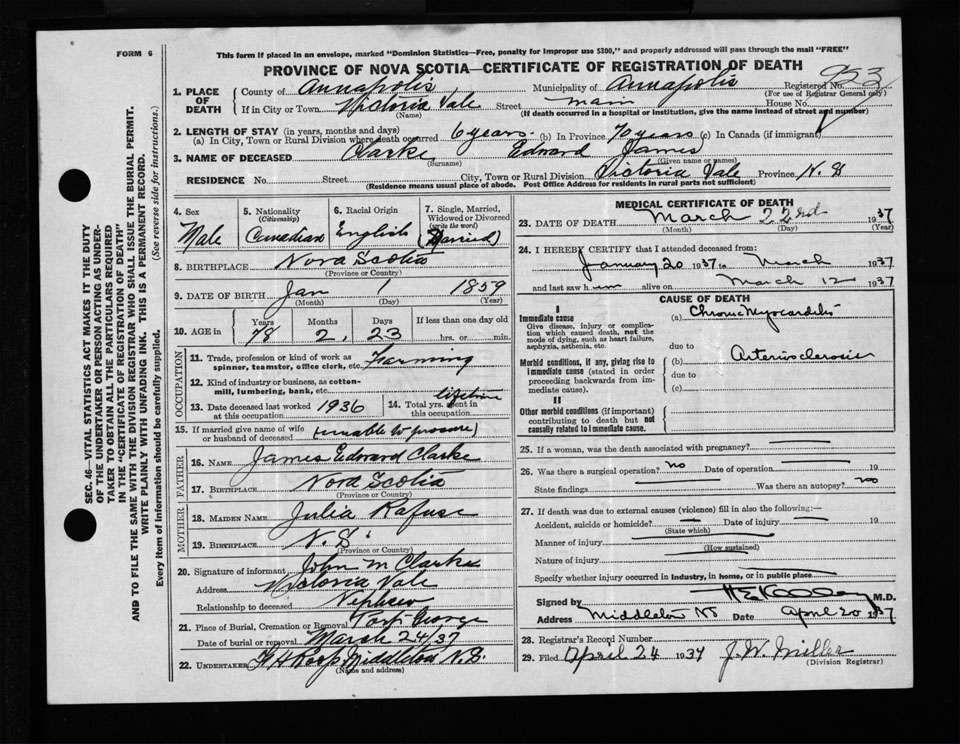 FORM 6
This form if placed in an envelope, marked "Dominion Statistics—Free, penalty for improper use $300," and properly addressed will pass through the mail "FREE"
PROVINCE OF NOVA SCOTIA—CERTIFICATE OF REGISTRATION OF DEATH
923
1. PLACE OF DEATH County of Annapolis Municipality of Annapolis Registered No.
(For use of Registrar General only)
If in City or Town Victoria Vale Street main House No.
(Name) (If death occurred in a hospital or institution, give the name instead of street and number)
2. LENGTH OF STAY (in years, months and days)
(a) In City, Town or Rural Division where death occurred 6 years (b) In Province 70 years (c) In Canada (if immigrant)
3. NAME OF DECEASED Clarke Edward James
(Surname) (Given name or names)
RESIDENCE No. Street City, Town or Rural Division Victoria Vale Province N.S
(Residence means usual place of abode. Post Office Address for residents in rural parts not sufficient)
SEC. 46—VITAL STATISTICS ACT MAKES IT THE DUTY
OF THE UNDERTAKER OR PERSON ACTING AS UNDER-
TAKER TO OBTAIN ALL THE PARTICULARS REQUIRED
IN THE "CERTIFICATE OF REGISTRATION OF DEATH"
AND TO FILE THE SAME WITH THE DIVISION REGISTRAR WHO SHALL ISSUE THE BURIAL PERMIT.
WRITE PLAINLY WITH UNFADING INK. THIS IS A PERMANENT RECORD.
Every item of information should be carefully supplied. (See reverse side for instructions.)
4. Sex 5. Nationality (Citizenship) 6. Racial Origin 7. Single, Married, Widowed or Divorced (write the word)
Male Canadian English (Married)
8. BIRTHPLACE Nova Scotia
(Province or Country)
9. DATE OF BIRTH Jan 1 1859
(Month) (Day) (Year)
10. AGE in Years Months Days If less than one day old
78 2 23 hrs. or min.
OCCUPATION
11. Trade, profession or kind of work as spinner, teamster, office clerk, etc. Farming
12. Kind of industry or business, as cotton-mill, lumbering, bank, etc.
13. Date deceased last worked at this occupation 1936 14. Total yrs. spent in this occupation lifetime
15. If married give name of wife or husband of deceased (unable to procure)
FATHER
16. NAME James Edward Clarke
17. BIRTHPLACE Nova Scotia
(Province or Country)
MOTHER
18. MAIDEN NAME Julia Rafuse
19. BIRTHPLACE N.S.
(Province or Country)
20. Signature of informant John M Clarke
Address Victoria Vale
Relationship to deceased Nephew
21. Place of Burial, Cremation or Removal Port George
Date of burial or removal March 24/37
22. UNDERTAKER Middleton N.S.
(Name and address)
MEDICAL CERTIFICATE OF DEATH
23. DATE OF DEATH March 23rd 1937
(Month) (Day) (Year)
24. I HEREBY CERTIFY that I attended deceased from:
January 20 1937 to March 1937
and last saw him alive on March 12 1937
CAUSE OF DEATH
I
Immediate cause (a) Chronic Myocarditis
Give disease, injury or complication which caused death, not the mode of dying, such as heart failure, asphyxia, asthenia, etc.
due to
Morbid conditions, if any, giving rise to immediate cause (stated in order proceeding backwards from immediate cause).
(b) Arteriosclerosis
due to
(c)
II
Other morbid conditions (if important) contributing to death but not causally related to immediate cause.
25. If a woman, was the death associated with pregnancy?
26. Was there a surgical operation? no Date of operation 19
State findings Was there an autopsy? no
27. If death was due to external causes (violence) fill in also the following:—
Accident, suicide or homicide? Date of injury 19
(State which)
Manner of injury
(How sustained)
Nature of injury
Specify whether injury occurred in industry, in home, or in public place
Signed by M.D.
Address Middleton NS Date April 20 1937
28. Registrar's Record Number
29. Filed April 24 1937 J.W. Miller
(Division Registrar)